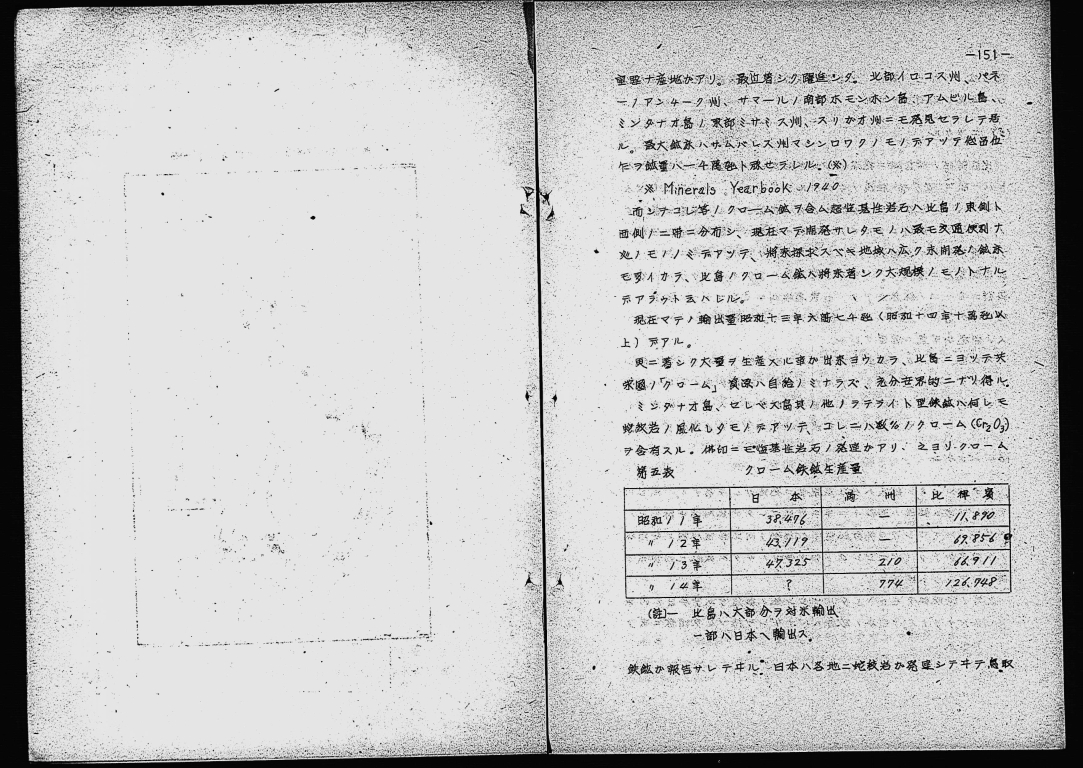 -151-
重要ナ産地ガアリ。最近著シク躍進シタ。北部イロコス州、パネ
ー、アンチーク州、サマール南部ホモンホン島、アムビル島、
ミンダナオ島ノ東部ミサミス州、スリガオ州ニモ発見セラレテ居
ル。最大鉱床ハサムバレス州マシンロツクノモノデアツテ
ト称セラレル。(※)
※ Minerals Yearbook 1940
而シテコレ等ノクローム鉱ヲ含ム超塩基性岩石ハ比島ノ東側ト
西側ノ二帯ニ分布シ、現在マデ開発サレタモノハ最モ交通便利ナ
地ノモノノミデアツテ、将来探求スベキ地域ハ広ク未開発ノ鉱床
モ多イカラ、比島ノクローム鉱ハ将来著シク大規模ノモノトナル
デアラウト云ハレル。
現在マデノ輸出量昭和十三年六萬七千瓲(昭和十四年十萬瓲以
上)デアル。
更ニ著シク大量ヲ生産スル事ガ出来ヨウカラ、比島ニヨツテ共
栄圏ノ「クローム」資源ハ自給ノミナラズ、充分世界的ニナリ得ル。
ミンダナオ島、セレベス島其ノ他ノラテライト型鉄鉱ハ何レモ
蛇紋岩ノ風化シタモノデアツテ、コレニハ数%ノクローム(Cr2O3)
ヲ含有スル。佛印ニモ塩基性岩石ノ発達ガアリ、之ヨリクローム
第五表 クローム鉄鉱生産量
日本 満州 比律賓
昭和11年 38,476 — 11,890
〃 12年 43,119 — 69,856
〃 13年 47,325 210 66,911
〃 14年 ? 774 126,748
(註)— 比島ハ大部分ヲ対米輸出
一部ハ日本ヘ輸出ス
鉄鉱ガ報告サレテヰル。日本ハ各地ニ蛇紋岩ガ発達シテヰテ鳥取